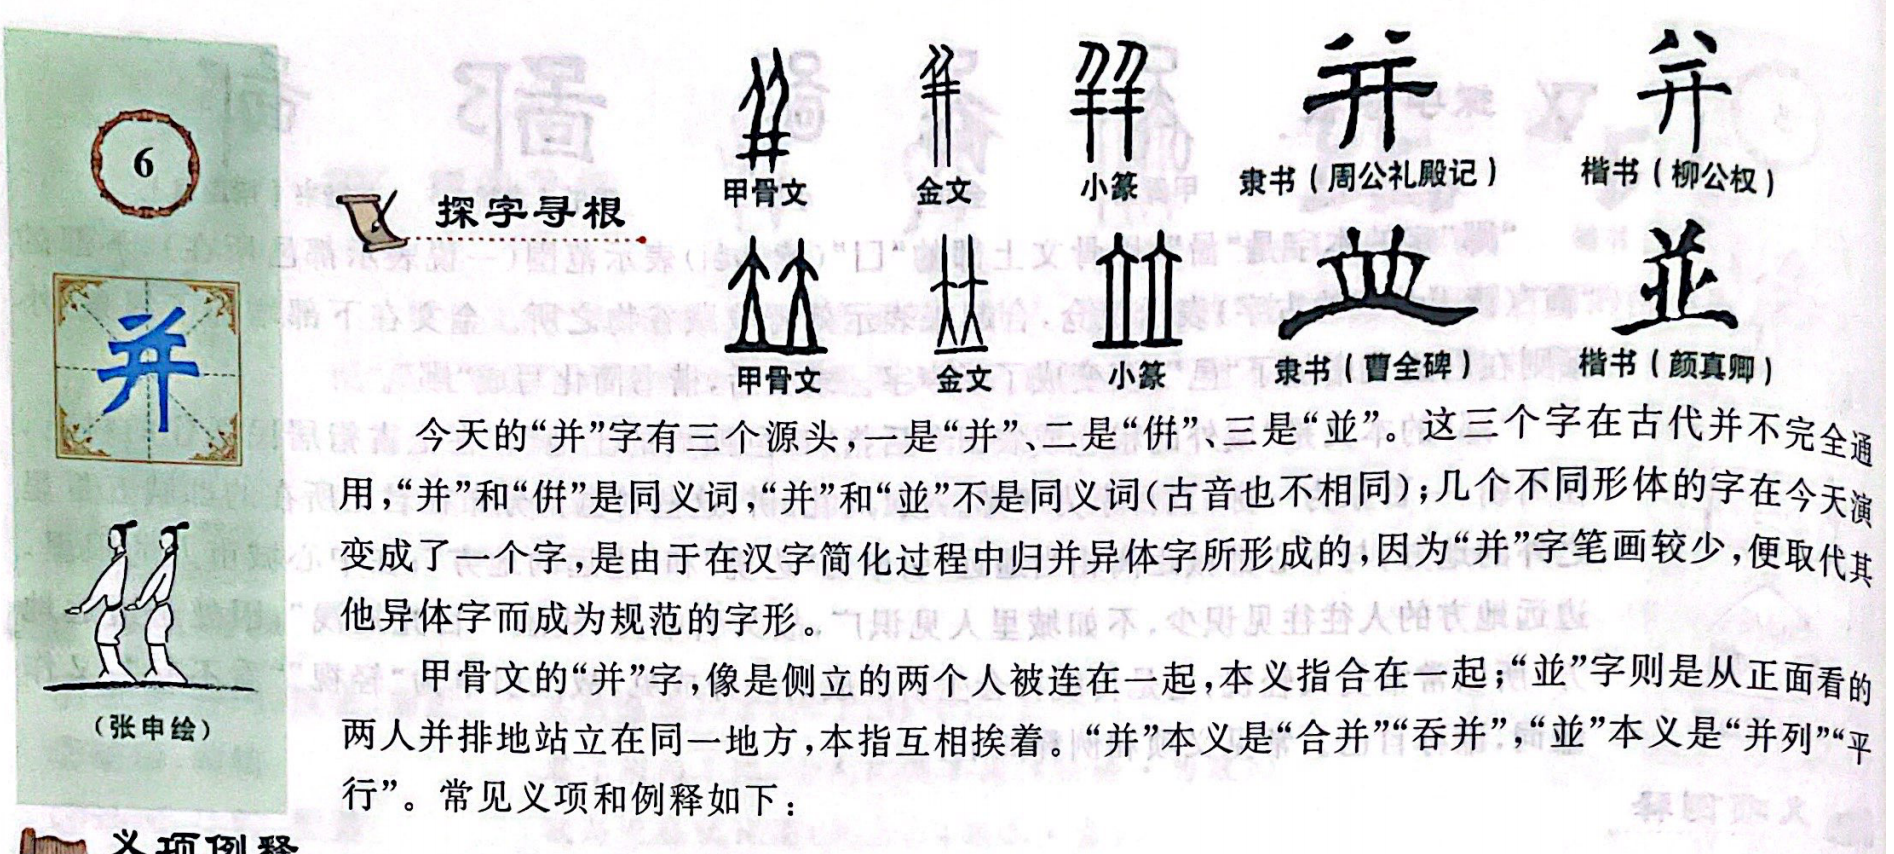 6
探字寻根
甲骨文 金文 小篆 隶书（周公礼殿记） 楷书（柳公权）
甲骨文 金文 小篆 隶书（曹全碑） 楷书（颜真卿）
并
（张申绘）
今天的“并”字有三个源头，一是“并”、二是“併”、三是“並”。这三个字在古代并不完全通
用，“并”和“併”是同义词，“并”和“並”不是同义词（古音也不相同）；几个不同形体的字在今天演
变成了一个字，是由于在汉字简化过程中归并异体字所形成的，因为“并”字笔画较少，便取代其
他异体字而成为规范的字形。
甲骨文的“并”字，像是侧立的两个人被连在一起，本义指合在一起；“並”字则是从正面看的
两人并排地站立在同一地方，本指互相挨着。“并”本义是“合并”“吞并”，“並”本义是“并列”“平
行”。常见义项和例释如下：
义项例释